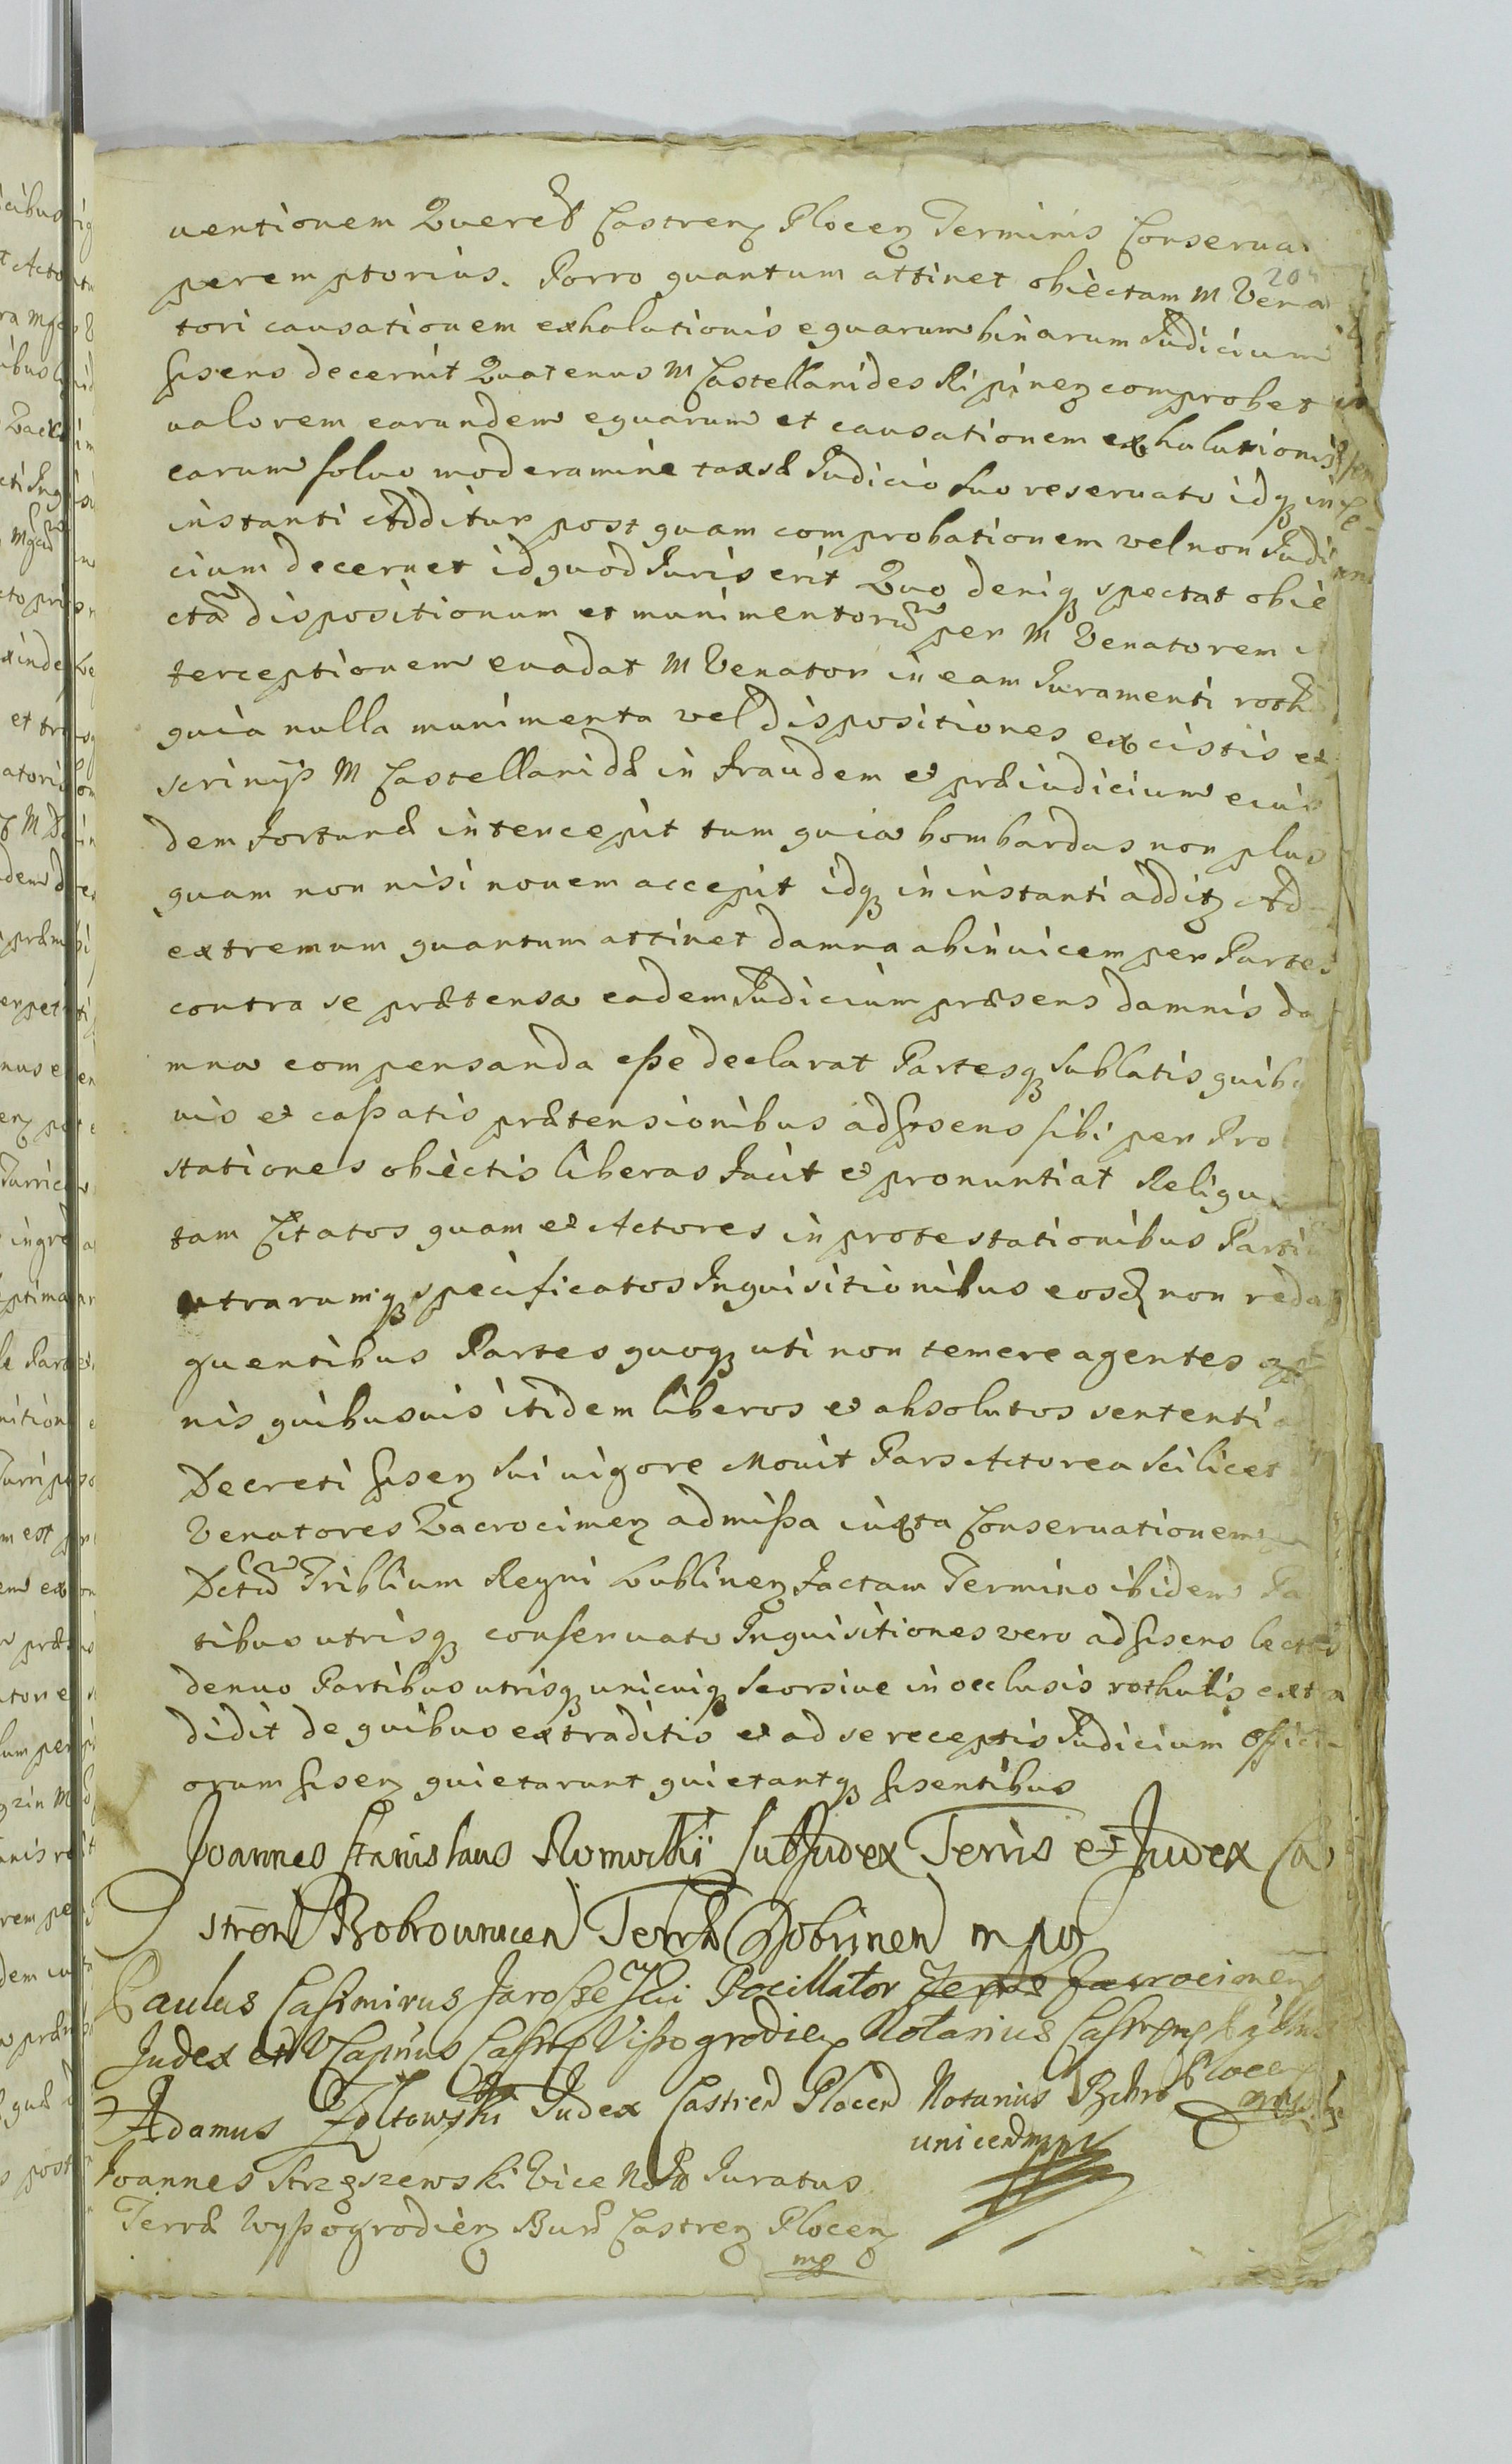 uentionem Querel Castren Plocen Terminis Conserua
peremptorius. Porro quantum attinet obiectam M Vena
tori causationem exhalationis equarum binarum Judicium
pñsens decernit Quatenus M Castellanides Ripinen comprobet
ualorem earundem equarum et causationem exhalationis
earum saluo moderamine taxæ Judicio suo reseruato idq in
instanti Additur post quam comprobationem vel non Judi
cium decernet id quod Juris erit Quo deniq spectat obie
ctã dispositionum et munimentorũ per M Venatorem
terceptionem euadat M Venator in eam Juramenti roth
quia nulla munimenta vel dispositiones ex cistis et
scrinijs M Castellanidæ in fraudem et præiudicium eius
dem Fortunæ intercepit tum quia bombardas non plus
quam non nisi nouem accepit idq in instanti additz Ad
extremum quantum attinet damna abinuicem per Partes
contra se prætensa eadem Judicium præsens damnis da
mna compensanda esse declarat Partesq sublatis quib
uis et cassatis prætensionibus ad pñsens sibi per Pro
stationes obiectis liberas facit et pronuntiat Reliqu
tam Citatos quam et Actores in protestationibus Parti
utrarumq specificatos Inquisitionibus eosd non reda
guentibus Partes quoq uti non temere agentes
nis quibusuis itidem liberos et absolutos sententi
Decreti pñsen sui uigore Mouit Pars Actorea Scilicet
Venatores Zacrocimen admissa iuxta Conseruationem
Dctũ Triblium Regni Lublinen factam Termino ibidem Pa
tibus utrisq conseruato Inquisitiones vero ad pñsens lectas
denuo Partibus utrisq unicuiq seorsiue in occlusis rothulis extra
didit de quibus extraditis et ad se receptis Judicium offici
orum pñsen quietarunt quietantq pñsentibus
Joannes Stanislaus Romocki SubJudex Terris et Judex Ca
stren Bobrounicen Terræ Dobrinen mp
Paulus Casimirus Jarosze Ski Pocillator Zacrocimen
Judex et VCapnus Castr Vissogrodien Notarius Castr
Adamus Zoltowski Judex Castren Plocen Notarius Plocen
Joannes Strzeszewski Vice Juratus
Terræ Wyssogrodien Bur Castren Plocen
mp